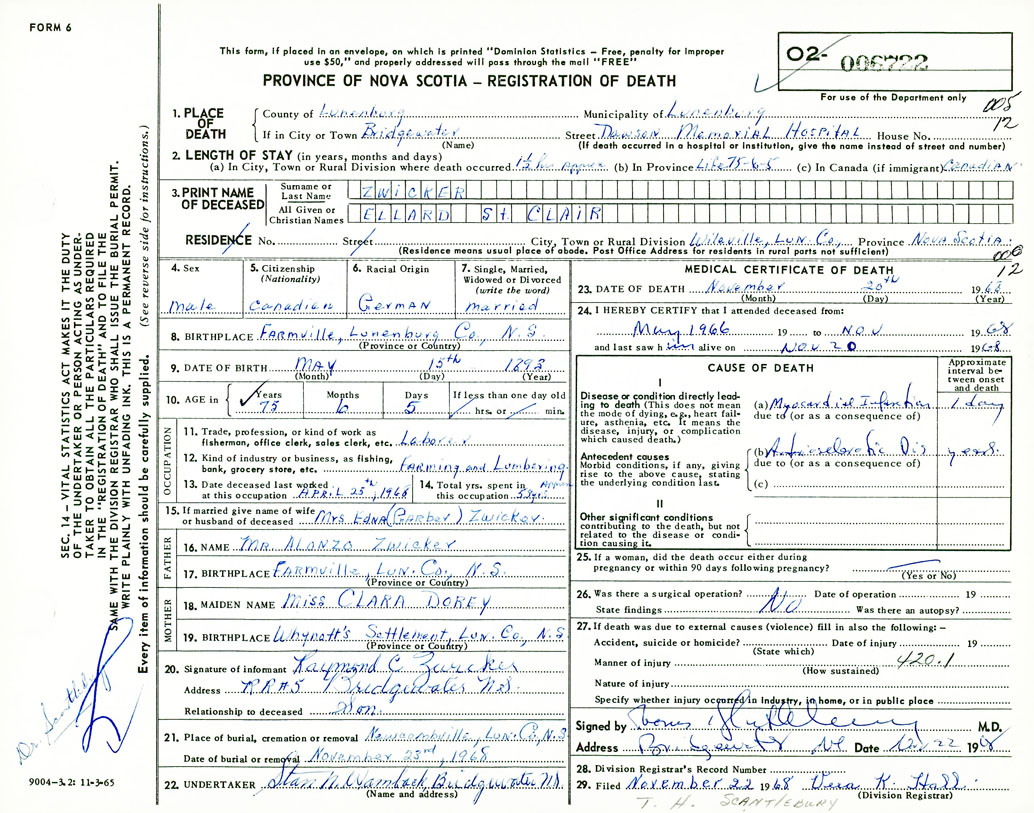 FORM 6
This form, if placed in an envelope, on which is printed "Dominion Statistics – Free, penalty for improper
use $50," and properly addressed will pass through the mail "FREE"
PROVINCE OF NOVA SCOTIA – REGISTRATION OF DEATH
O2- 006722
For use of the Department only
005
12
1. PLACE OF DEATH
County of Lunenburg Municipality of Lunenburg
If in City or Town Bridgewater Street Dawson Memorial Hospital House No.
(Name) (If death occurred in a hospital or institution, give the name instead of street and number)
2. LENGTH OF STAY (in years, months and days)
(a) In City, Town or Rural Division where death occurred (b) In Province Life 75-6-5 (c) In Canada (if immigrant) Canadian
3. PRINT NAME OF DECEASED
Surname or Last Name ZWICKER
All Given or Christian Names ELLARD St. CLAIR
RESIDENCE No. Street City, Town or Rural Division Wileville, Lun. Co., Province Nova Scotia
(Residence means usual place of abode. Post Office Address for residents in rural parts not sufficient)
000
12
4. Sex male
5. Citizenship (Nationality) Canadian
6. Racial Origin German
7. Single, Married, Widowed or Divorced (write the word) married
8. BIRTHPLACE Farmville, Lunenburg Co., N.S.
(Province or Country)
9. DATE OF BIRTH MAY 15th 1893
(Month) (Day) (Year)
10. AGE in Years Months Days If less than one day old
75 6 5 hrs. or min.
OCCUPATION
11. Trade, profession, or kind of work as
fisherman, office clerk, sales clerk, etc. Laborer
12. Kind of industry or business, as fishing,
bank, grocery store, etc. Farming and Lumbering
13. Date deceased last worked
at this occupation APRIL 25th, 1968
14. Total yrs. spent in
this occupation
15. If married give name of wife
or husband of deceased Mrs Edna (Garber) Zwicker
FATHER
16. NAME Mr. Alonzo Zwicker
17. BIRTHPLACE Farmville, Lun. Co., N.S.
(Province or Country)
MOTHER
18. MAIDEN NAME Miss CLARA DOREY
19. BIRTHPLACE Whynott's Settlement, Lun. Co., N.S
(Province or Country)
20. Signature of informant Raymond C. Zwicker
Address RR#5 Bridgewater N.S.
Relationship to deceased Son.
21. Place of burial, cremation or removal Newcombville, Lun. Co., N.S.
Date of burial or removal November 23rd, 1968
22. UNDERTAKER Bridgewater NS
(Name and address)
MEDICAL CERTIFICATE OF DEATH
23. DATE OF DEATH November 20th 1968
(Month) (Day) (Year)
24. I HEREBY CERTIFY that I attended deceased from:
May 1966 19 to Nov 1968
and last saw him alive on Nov. 20 1968
CAUSE OF DEATH
Approximate interval between onset and death
I
Disease or condition directly leading to death (This does not
mean the mode of dying, e.g., heart failure, asthenia, etc. It means the
disease, injury, or complication
which caused death.)
(a) Myocardial Infarction 1 day
due to (or as a consequence of)
Antecedent causes
Morbid conditions, if any, giving
rise to the above cause, stating
the underlying condition last.
(b) Dis years
due to (or as a consequence of)
(c)
II
Other significant conditions
contributing to the death, but not
related to the disease or condition causing it.
25. If a woman, did the death occur either during
pregnancy or within 90 days following pregnancy?
(Yes or No)
26. Was there a surgical operation? No Date of operation 19
State findings Was there an autopsy?
27. If death was due to external causes (violence) fill in also the following: –
Accident, suicide or homicide? Date of injury 19
(State which)
Manner of injury 420.1
(How sustained)
Nature of injury
Specify whether injury occurred in Industry, in home, or in public place
Signed by M.D.
Address Bridgewater NS Date Nov 22 1968
28. Division Registrar's Record Number
29. Filed November 22 1968 Vera K. Hall
(Division Registrar)
T. H. SCANTLEBURY
SEC. 14 – VITAL STATISTICS ACT MAKES IT THE DUTY
OF THE UNDERTAKER OR PERSON ACTING AS UNDER-
TAKER TO OBTAIN ALL THE PARTICULARS REQUIRED
IN THE "REGISTRATION OF DEATH" AND TO FILE THE
SAME WITH THE DIVISION REGISTRAR WHO SHALL ISSUE THE BURIAL PERMIT.
WRITE PLAINLY WITH UNFADING INK. THIS IS A PERMANENT RECORD.
Every item of information should be carefully supplied. (See reverse side for instructions.)
9004–3.2: 11-3-65